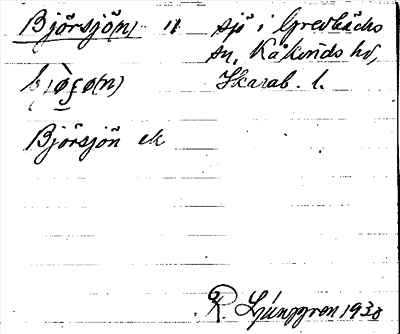 Björsjö(n) " sjö i Grevbäcks
sn, Kåkinds hd,
Skarab. l.
Björsjön ek
R. Ljunggren 1930